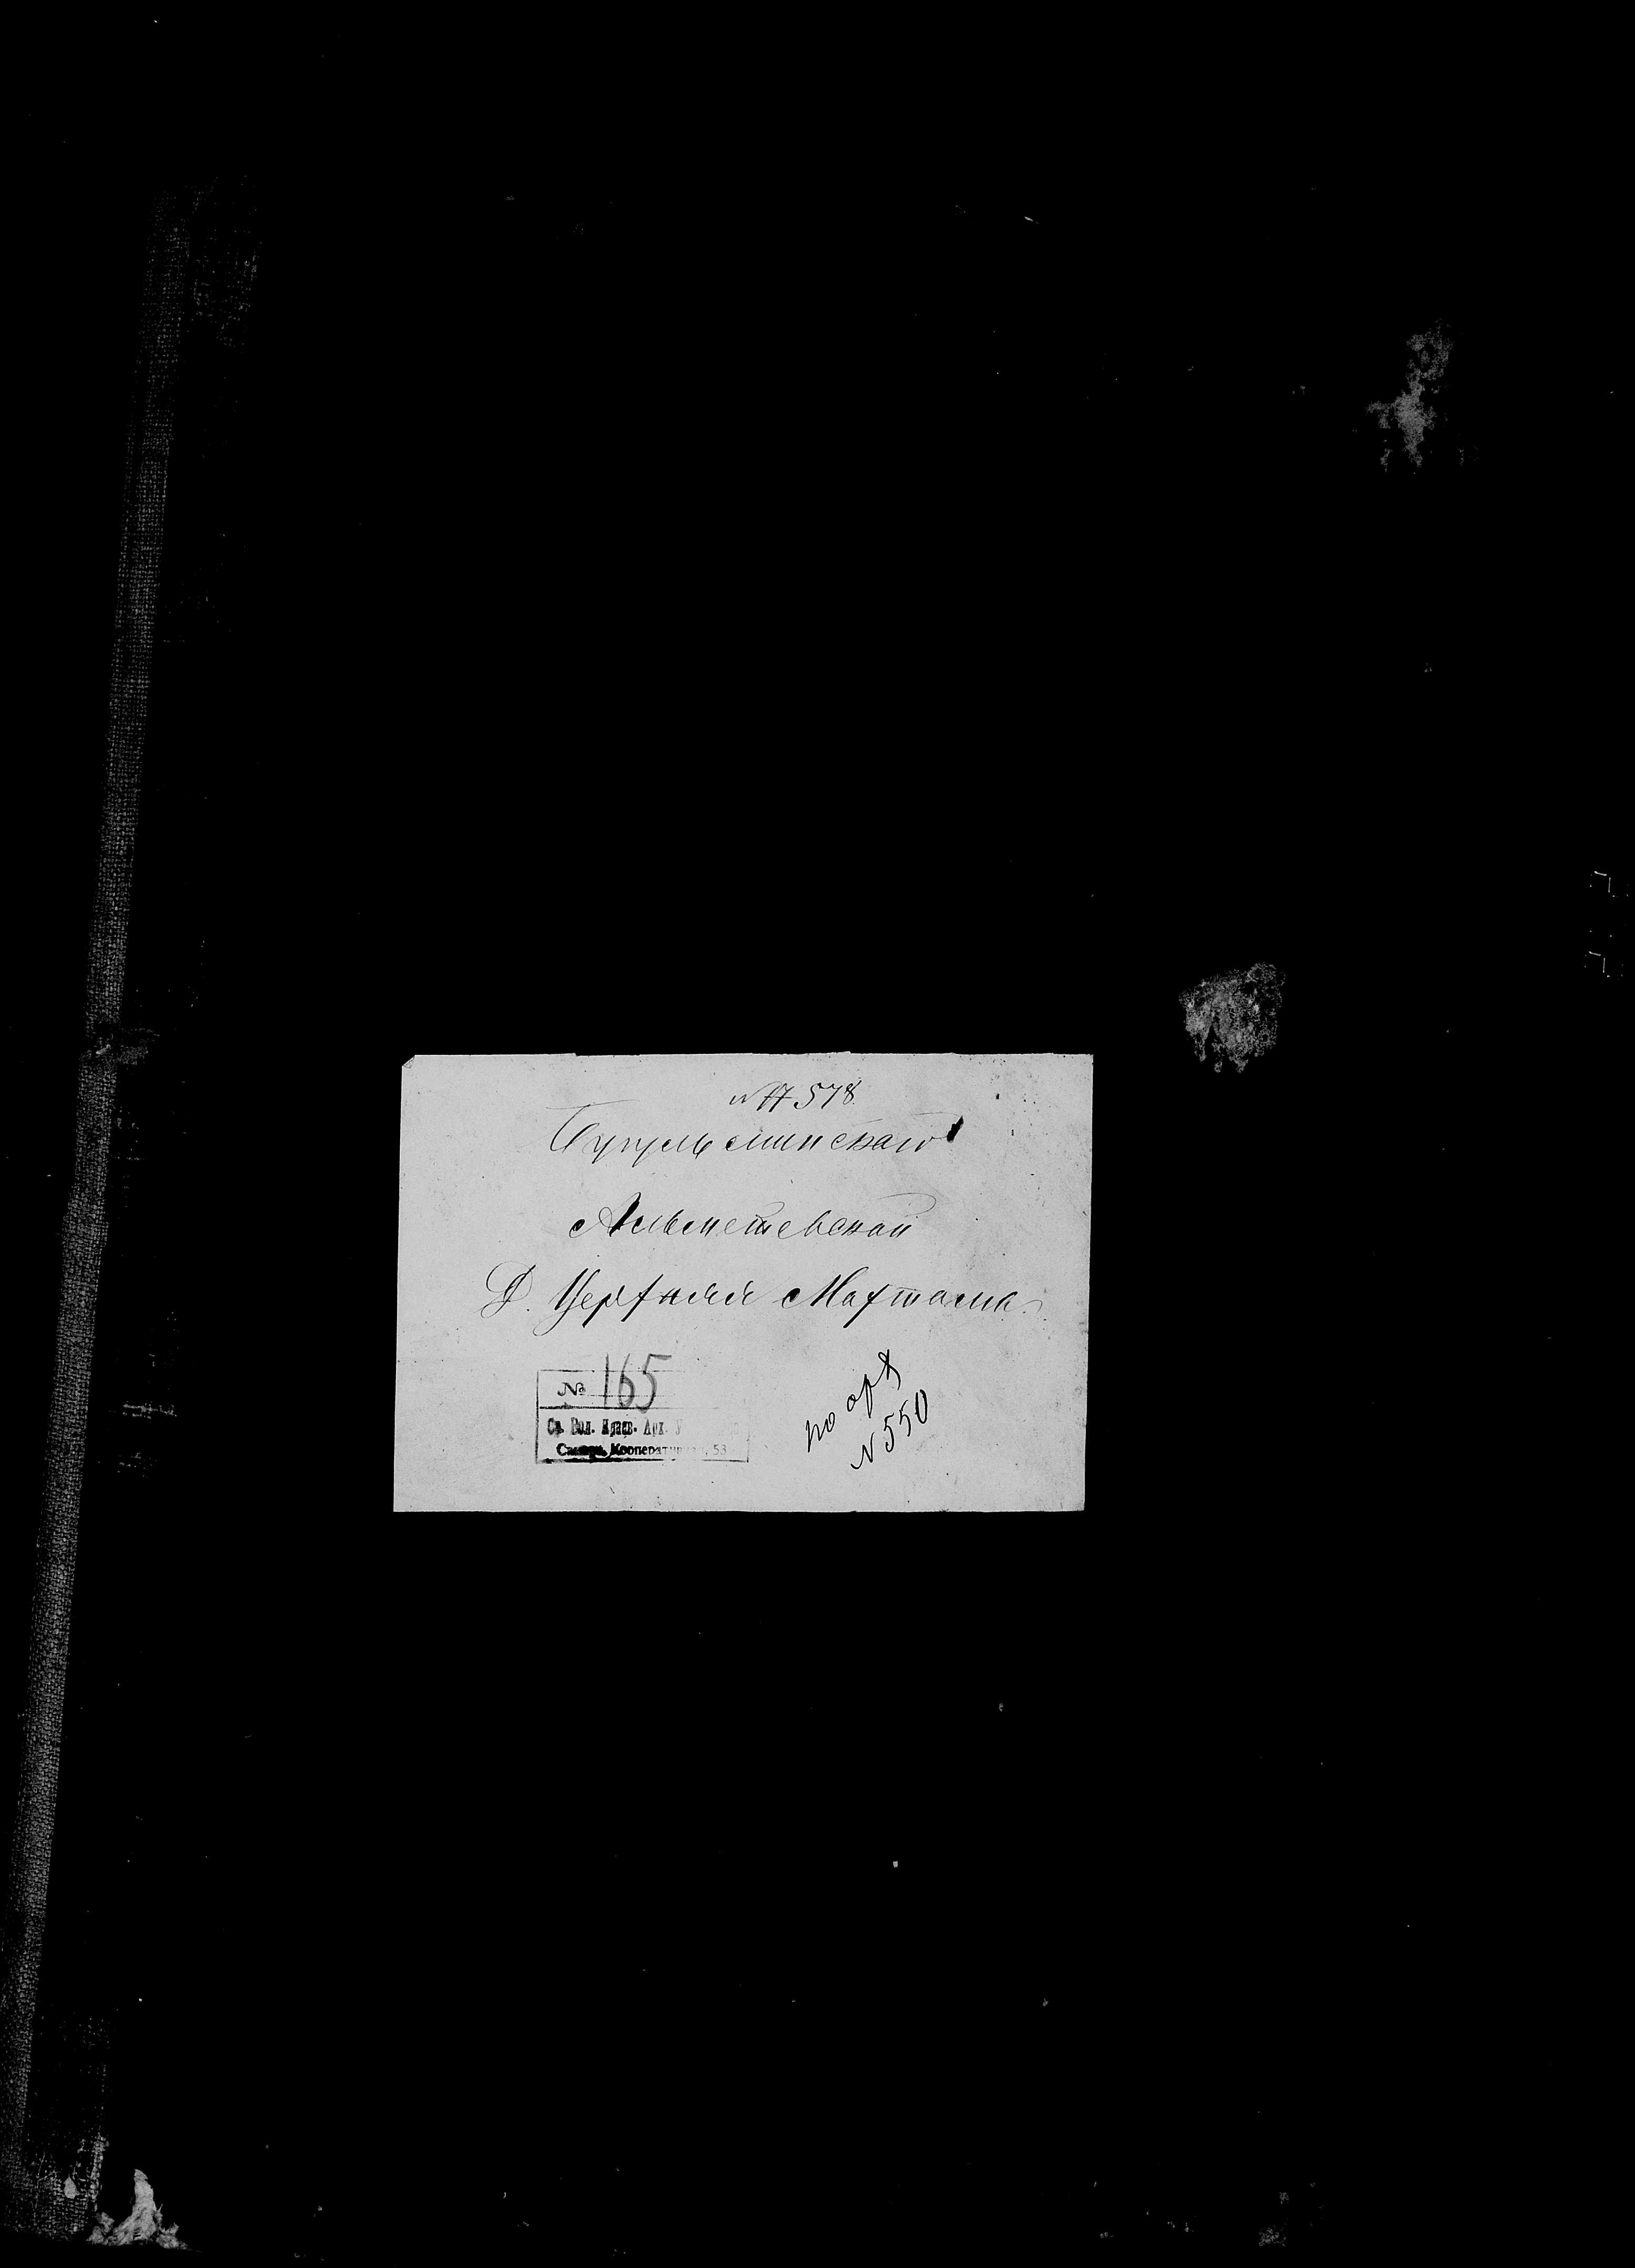 № 17578
Бугульминскаго
Альметевской
Д. Верхняя Мактама.
№ 165
Ср. Вол. Краев. Арх.
Самара, Кооперативная, 53
по арх
№ 550